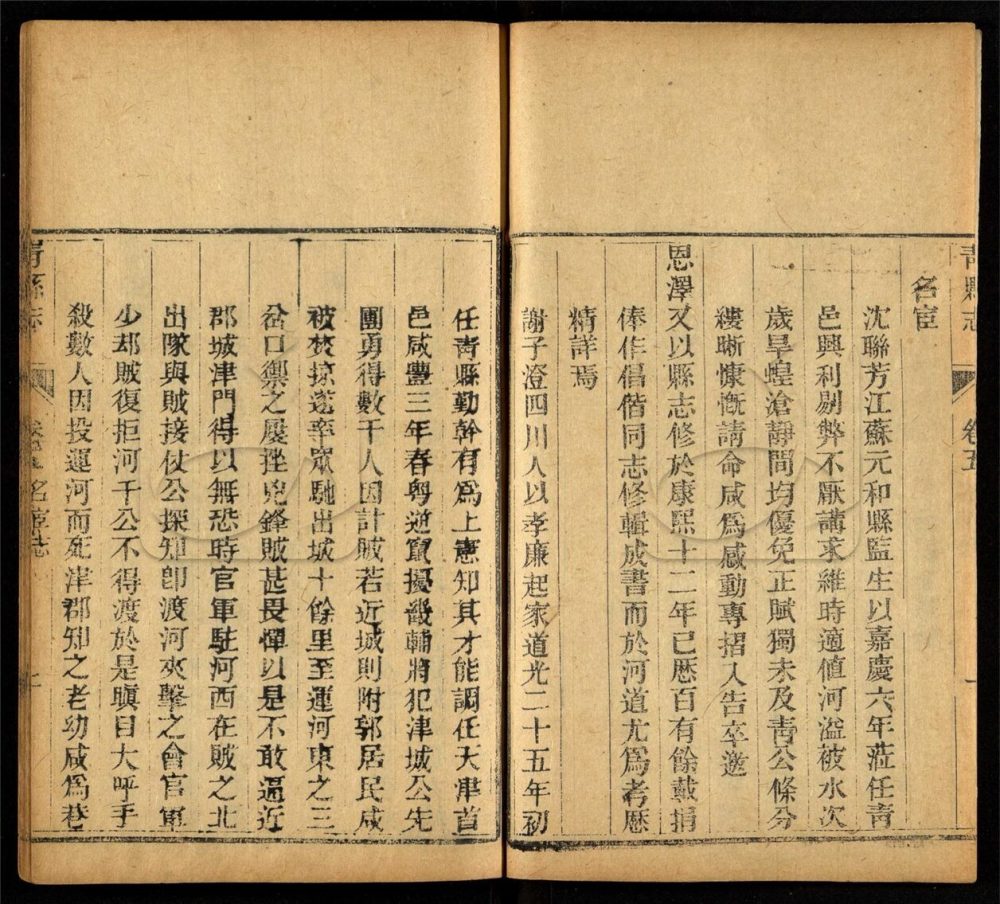 青縣志 卷五 一
名宦
沈聯芳江蘇元和縣監生以嘉慶六年蒞任青
邑興利剔弊不厭講求維時適値河溢被水次
歲旱蝗滄靜間均優免正賦獨未及青公條分
縷晰慷慨請命咸爲感動專摺入告卒邀
恩澤又以縣志修於康熙十二年已歷百有餘載捐
俸作倡偕同志修輯成書而於河道尤爲考歷
精詳焉
謝子澄四川人以孝廉起家道光二十五年初
任青縣勤幹有爲上憲知其才能調任天津首
邑咸豐三年春粤逆竄擾畿輔將犯津城公先
團勇得數千人因計賊若近城則附郭居民咸
被焚掠遂率眾馳出城十餘里至運河東之三
岔口禦之屢挫兇鋒賊甚畏憚以是不敢逼近
郡城津門得以無恐時官軍駐河西在賊之北
出隊與賊接仗公探知卽渡河夾擊之會官軍
少却賊復拒河干公不得渡於是瞋目大呼手
殺數人因投運河而死津郡知之老幼咸爲巷
青縣志 卷五名宦志